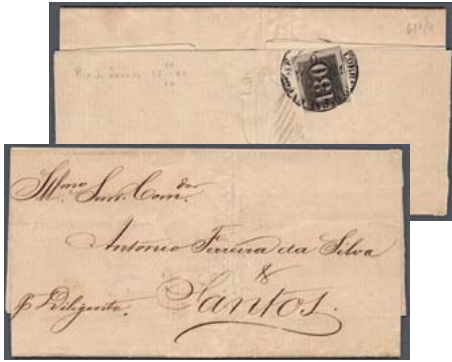 Rio de Janeiro
180
Ill.mo Snr. Com.dor
Antonio Ferreira da Silva
&
p Diligente. Santos.